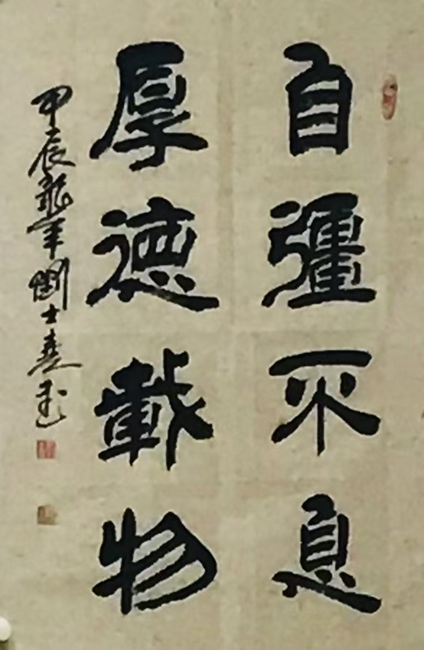 自彊不息
厚德載物
甲辰龍年劉士堯書